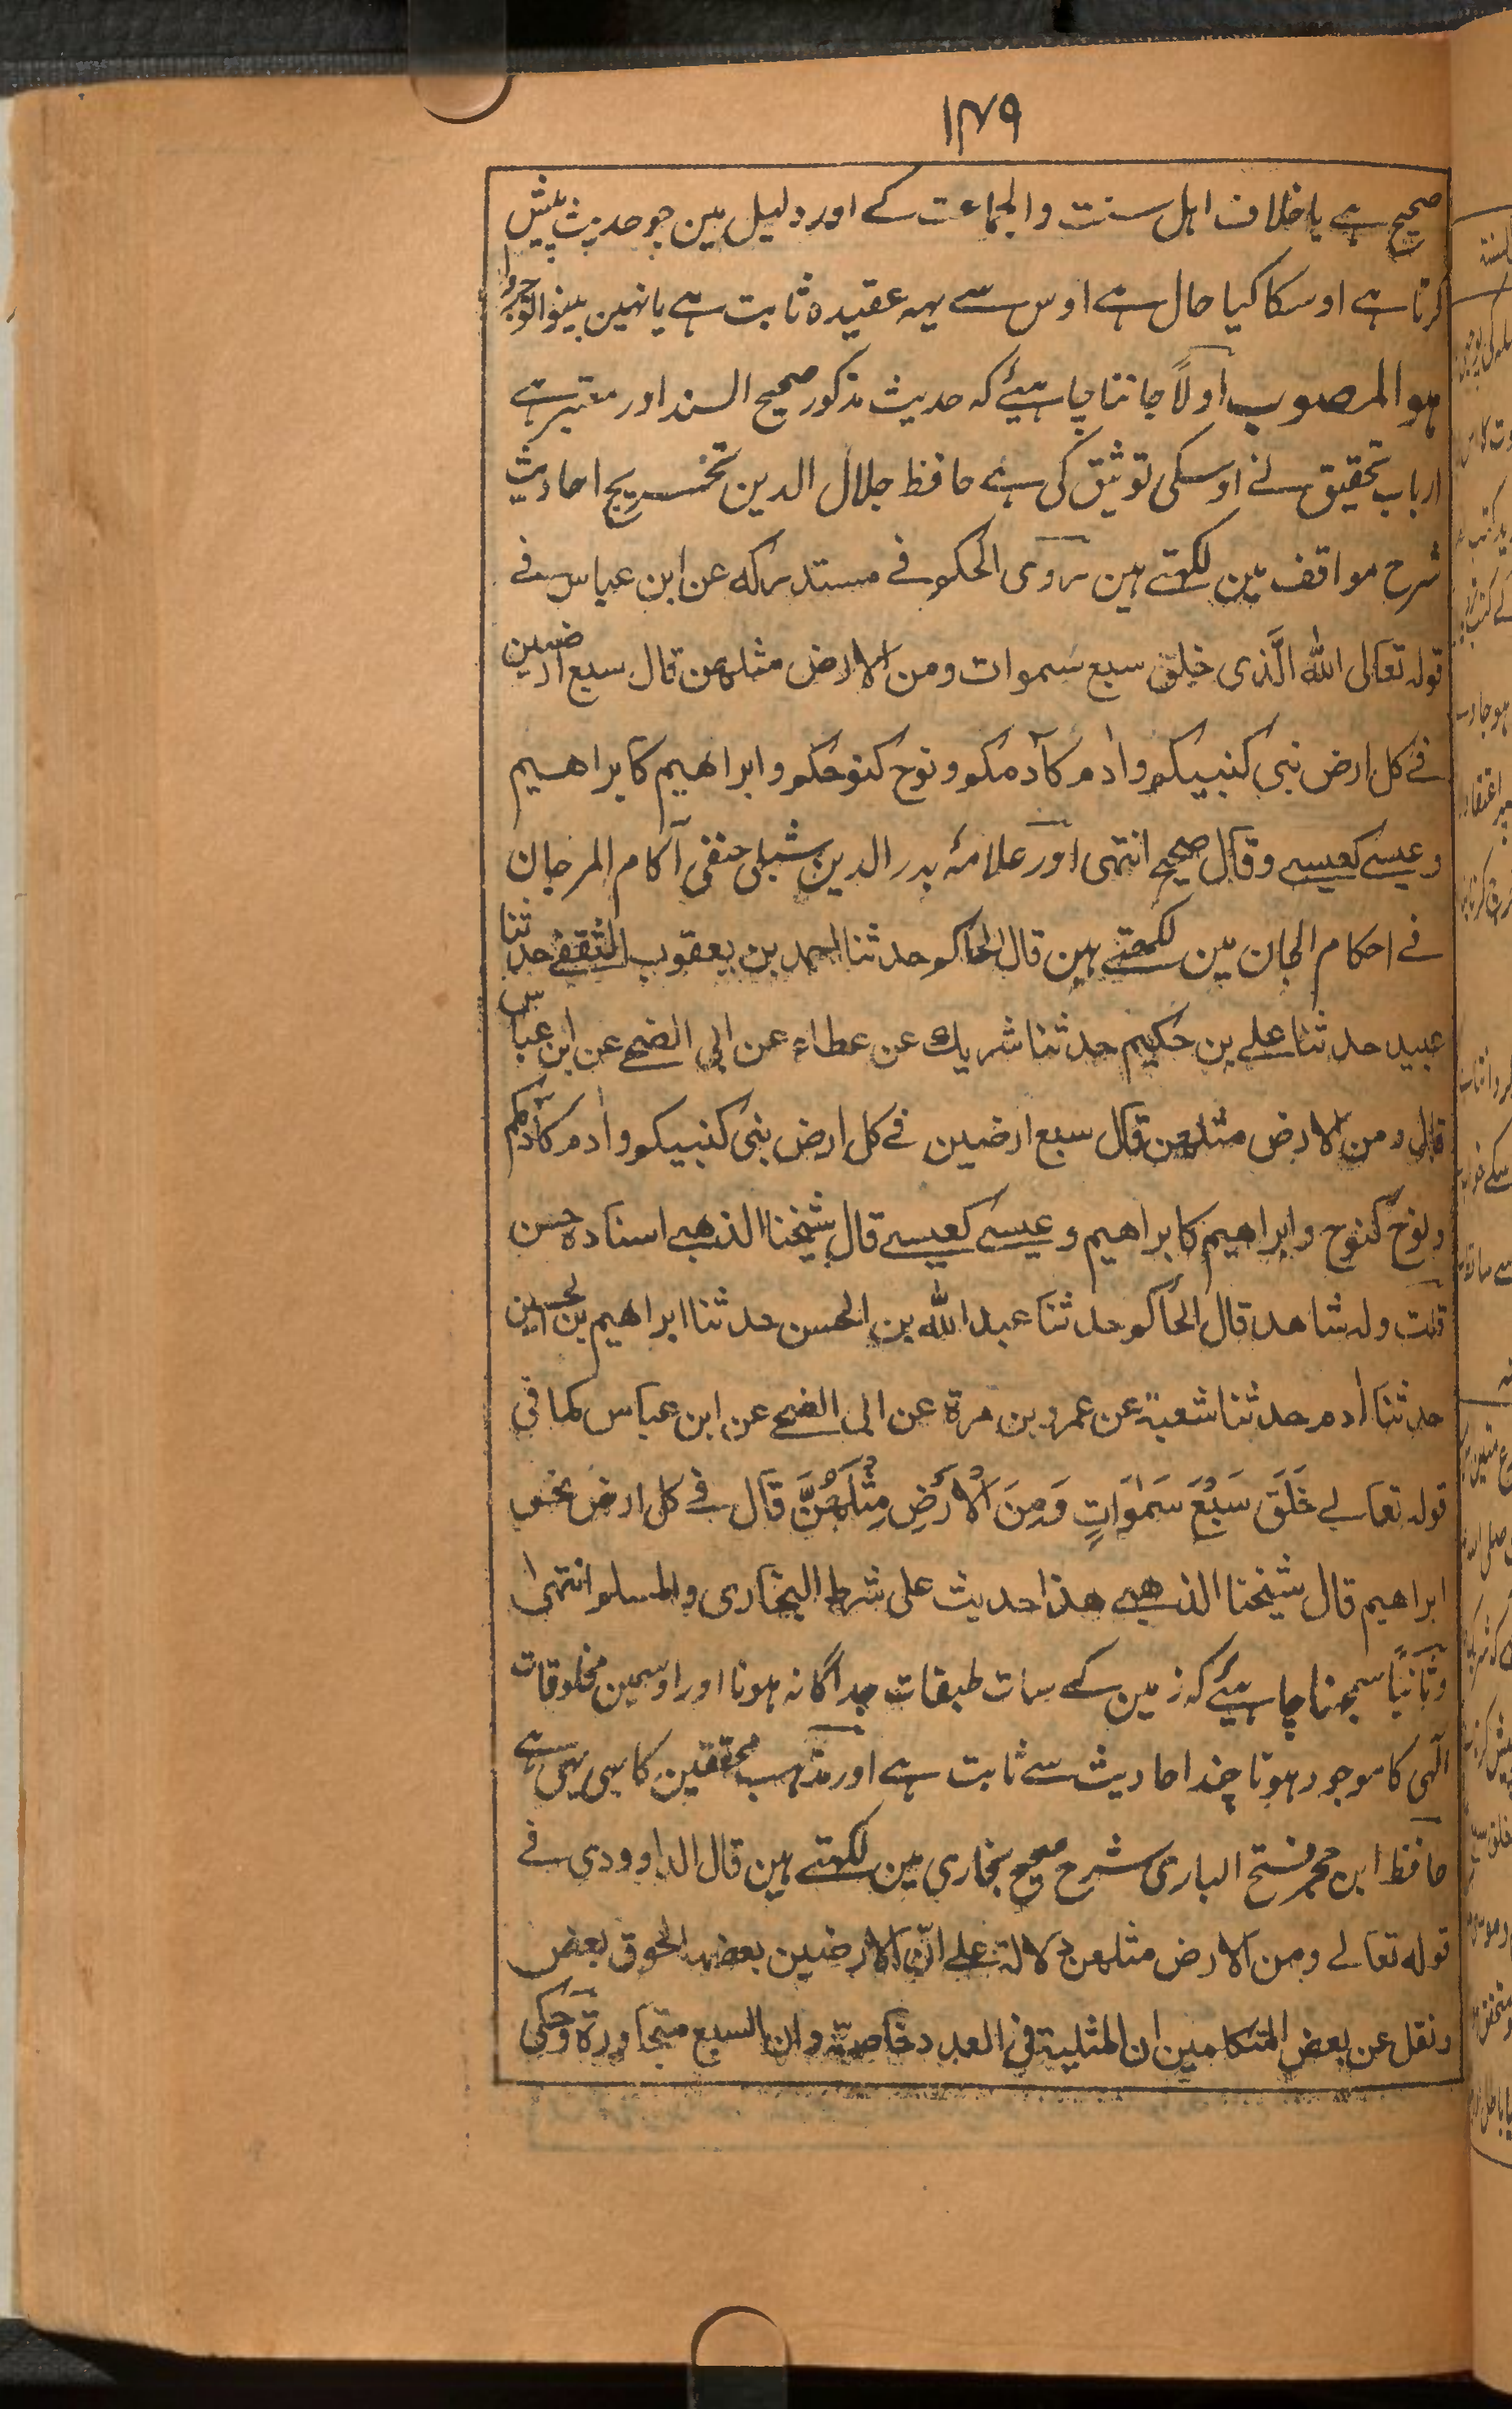 ۱۴۹
صحیح ہے یا خلاف اہل سنت والجماعت کے اور دلیل مین جو حدیث پیش
کرتا ہے اوسکا کیا حال ہے اوس سے یہہ عقیدہ ثابت ہے یا نہین بینوا توجروا
ہو المرصوب اولاً جاننا چاہیئے کہ حدیث مذکور صحیح السند اور معتبر ہے
ارباب تحقیق نے اوسکی توثیق کی ہے حافظ جلال الدین تخریج احادیث
شرح مواقف مین لکھتے ہین روی الحاکم فی مستدرکہ عن ابن عباس فے
قولہ تعالی اللّٰہ الَّذی خلق سبع سموات ومن الارض مثلھن قال سبع ارضین
فے کل ارض نبی کنبیکم واٰدم کآدمکم ونوح کنوحکم وابراھیم کابراھیم
وعیسے کعیسے وقال صحیح انتہی اور علامہ بدر الدین شبلی حنفی آکام المرجان
فے احکام الجان مین لکھتے ہین قال الحاکم حدثنا احمد بن یعقوب الثقفے حدثنا
عبید حدثنا علے بن حکیم حدثنا شریك عن عطاء عن ابی الضحے عن ابن عباس
قال ومن الارض مثلھن قال سبع ارضین فے کل ارض نبی کنبیکم واٰدم کآدمکم
ونوح کنوح وابراھیم کابراھیم وعیسے کعیسے قال شیخنا الذھبے اسنادہ حسن
قلت ولہ شاھد قال الحاکم حدثنا عبد اللّٰہ بن الحسن حدثنا ابراھیم بن الحسین
حدثنا اٰدم حدثنا شعبة عن عمرو بن مرة عن ابی الضحے عن ابن عباس کما فی
قولہ تعالے خَلَقَ سَبْعَ سَمٰوَاتٍ وَمِنَ الْاَرْضِ مِثْلَھُنَّ قال فے کل ارض نحو
ابراھیم قال شیخنا الذھبے ھذا حدیث علی شرط البخاری والمسلم انتہیٰ
وثانیًا سمجھنا چاہیئے کہ زمین کے سات طبقات جداگانہ ہونا اور اوسمین مخلوقات
الٰہی کا موجود ہونا چند احادیث سے ثابت ہے اور مذہب محققین کا بہی یہی ہے
حافظ ابن حجر فتح الباری شرح صحیح بخاری مین لکھتے ہین قال الداوودی فے
قولہ تعالے ومن الارض مثلھن دلالة علے ان الارضین بعضہا فوق بعض
ونقل عن بعض المتکلمین ان المثلیة فی العدد خاصة وان السبع متجاورة وحکی